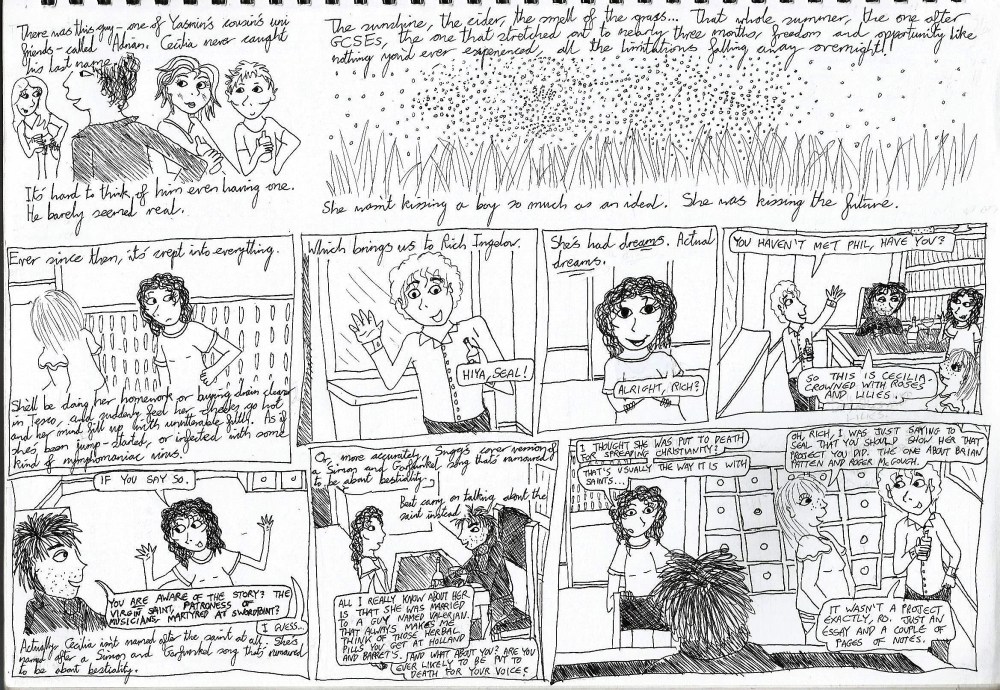 There was this guy - one of Yasmin's cousin's uni
friends - called Adrian. Cecilia never caught
his last name.
It's hard to think of him even having one.
He barely seemed real.
The sunshine, the cider, the smell of the grass... That whole summer, the one after
GCSEs, the one that stretched out to nearly three months, freedom and opportunity like
nothing you'd ever experienced, all the limitations falling away overnight!
She wasn't kissing a boy so much as an ideal. She was kissing the future.
Ever since then, it's crept into everything.
She'll be doing her homework or buying drain cleaner
in Tesco, and suddenly feel her cheeks go hot
and her mind fill up with unutterable filth. As if
she's been jump-started, or infected with some
kind of nymphomaniac virus.
Which brings us to Rich Ingelow.
HIYA, SEAL!
She's had dreams. Actual
dreams.
ALRIGHT, RICH?
YOU HAVEN'T MET PHIL, HAVE YOU?
SO THIS IS CECILIA-
CROWNED WITH ROSES
AND LILIES.
IF YOU SAY SO.
YOU ARE AWARE OF THE STORY? THE
VIRGIN SAINT, PATRONESS OF
MUSICIANS, MARTYRED AT SWORDPOINT?
I GUESS...
Actually Cecilia isn't named after the saint at all. She's
named after a Simon and Garfunkel song that's rumoured
to be about bestiality.
Or more accurately, Suggs's cover version of
a Simon and Garfunkel song that's rumoured
to be about bestiality.
Best carry on talking about the
saint instead.
ALL I REALLY KNOW ABOUT HER
IS THAT SHE WAS MARRIED
TO A GUY NAMED VALERIAN.
THAT ALWAYS MAKES ME
THINK OF THOSE HERBAL
PILLS YOU GET AT HOLLAND
AND BARRET'S.
AND WHAT ABOUT YOU? ARE YOU
EVER LIKELY TO BE PUT TO
DEATH FOR YOUR VOICE?
I THOUGHT SHE WAS PUT TO DEATH
FOR SPREADING CHRISTIANITY?
THAT'S USUALLY THE WAY IT IS WITH
SAINTS...
OH, RICH, I WAS JUST SAYING TO
SEAL THAT YOU SHOULD SHOW HER THAT
PROJECT YOU DID. THE ONE ABOUT BRIAN
PATTEN AND ROGER McGOUGH.
IT WASN'T A PROJECT
EXACTLY, RO. JUST AN
ESSAY AND A COUPLE OF
PAGES OF NOTES.